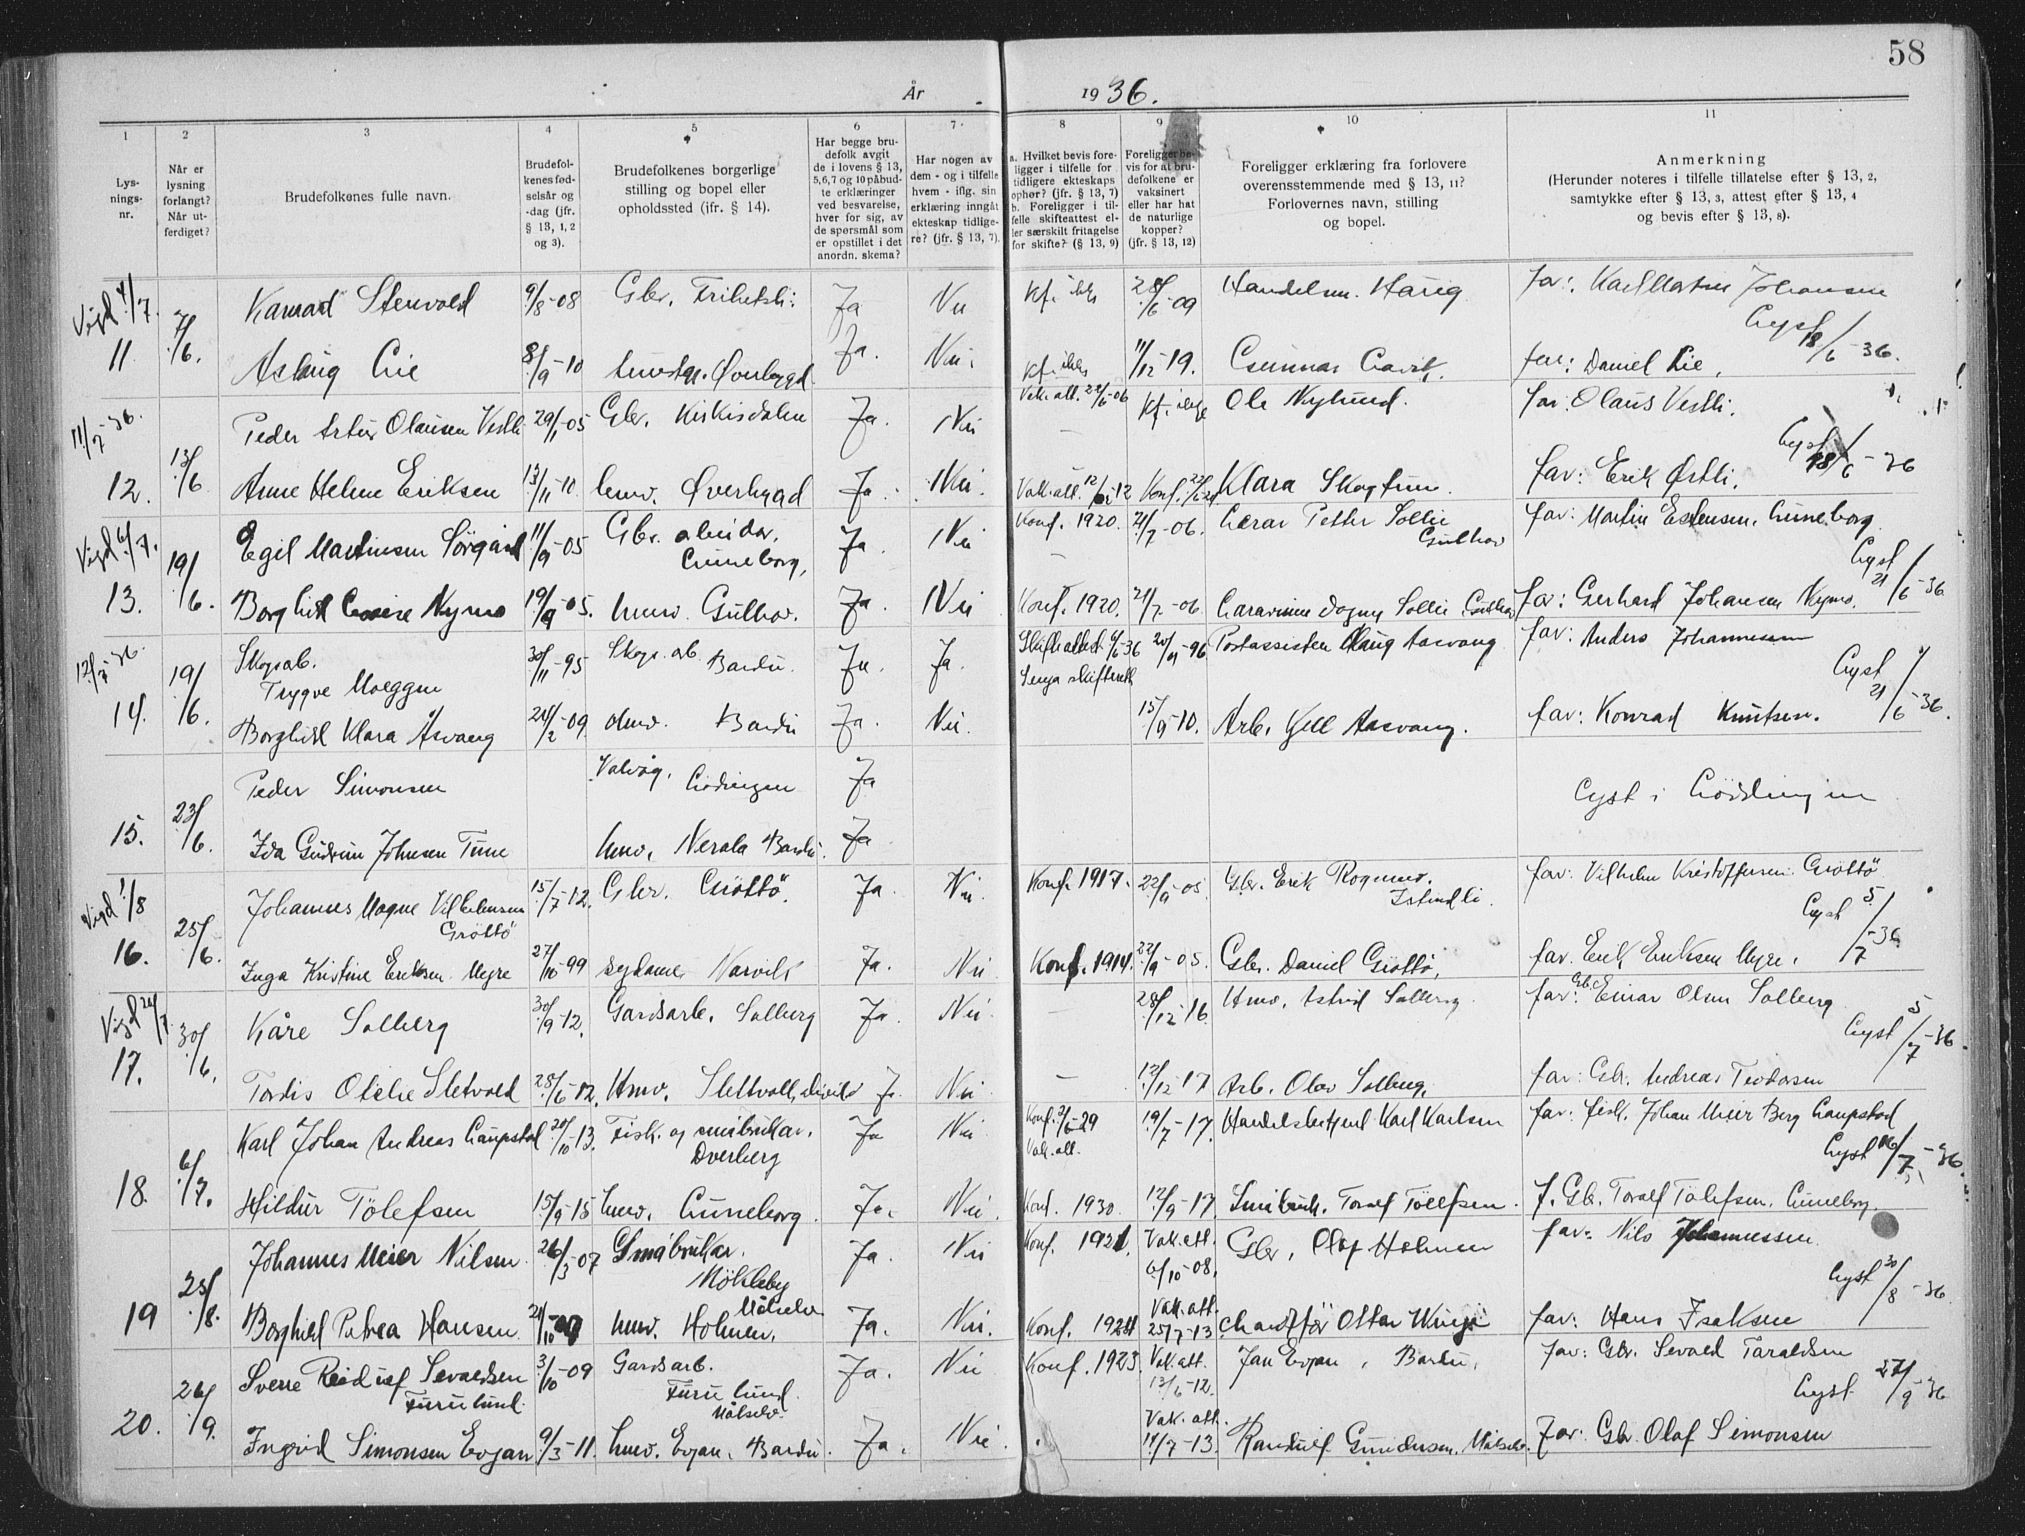 58
År 1936.
1 2 3 4 5 6 7 8 9 10 11
Lysningsnr.
Når er lysning forlangt? Når utferdiget?
Brudefolkenes fulle navn.
Brudefolkenes fødselsår og -dag (jfr. § 13, 1, 2 og 3).
Brudefolkenes borgerlige stilling og bopel eller opholdssted (jfr. § 14).
Har begge brudefolk avgit de i lovens § 13, 5, 6, 7 og 10 påbudte erklæringer ved besvarelse, hver for sig, av de spørsmål som er opstillet i det anordn. skema?
Har nogen av dem - og i tilfelle hvem - iflg. sin erklæring inngåt ekteskap tidligere? (jfr. § 13, 7).
a. Hvilket bevis foreligger i tilfelle for tidligere ekteskaps ophør? (jfr. § 13, 7) b. Foreligger i tilfelle skifteattest eller særskilt fritagelse for skifte? (§ 13, 9)
Foreligger bevis for at brudefolkene er vaksinert eller har hat de naturlige kopper? (jfr. § 13, 12)
Foreligger erklæring fra forlovere overensstemmende med § 13, 11? Forlovernes navn, stilling og bopel.
Anmerkning (Herunder noteres i tilfelle tillatelse efter § 13, 2, samtykke efter § 13, 3, attest efter § 13, 4 og bevis efter § 13, 8).
Vigd 4/7. Stenvold 9/8-08 Gbr. Ja Nei 28/6-09 far: Karl Johansen
11. 7/6. Aslaug Lie 8/9-10 Øverbygd Ja. Nei. 11/12-19. Gunnar far: Daniel Lie, Lyst 18/6-36.
11/7-36. Peder Artur Olausen Vestli 29/1-05 Gbr. Kirkisdalen Ja. Nei Vak.att. Ole Nylund. far: Olaus Vestli.
12. 13/6 Anne Helene Eriksen 13/11-10 hmv. Øverbygd Ja. Nei. Klara Skogtun. far: Erik Østli. Lyst 18/6-36
Vigd 6/7. Egil Martinsen Sørgård 11/9-05 Gbr. arbeider. Luneborg, Ja. Nei Konf. 1920. 21/7-06. Petter Sollie Gulhav far: Martin Estensen. Luneborg.
13. 19/6. Borghild Nymo 19/9-05. hmv. Gulhav. Ja. Nei Konf. 1920. 21/7-06. Dagny Sollie Gulhav far: Gerhard Johansen Nymo. Lyst 21/6-36
12/7-36. Skogsab. Trygve Moeggen 30/11-95 Skogsarb. Bardu. Ja. Ja. Skifteattest 6/6-36 Senja skifterett 20/9-96 Postassistent Haug Aasvang far: Anders Johannesen
14. 19/6. Borghild Klara Åsvang 24/2-09 hmv. Bardu Ja. Nei. 15/9-10. Arb. Kjell Aasvang. far: Konrad Knutsen. Lyst 21/6-36.
Peder Simonsen Lødingen Ja
15. 23/6. Ida Gudrun Johnsen Tune hmv. Bardu. Ja Lyst i Lødingen
Vigd 1/8 Johannes Magne Vilhelmsen Grøttø 15/7-12. Gbr. Grøttø. Ja. Nei. Konf. 1917. 22/9-05. Gbr. Erik Rognmo. Istindli. far: Vilhelm Kristoffersen Grøttø
16. 25/6. Inga Kristine Eriksen Myre 27/10-99 sydame Narvik Ja. Nei Konf. 1914. 22/9-05. Gbr. Daniel Grøttø, far. Erik Eriksen Myre. Lyst 5/7-36
Vigd Kåre Solberg 30/9-12. Gardsarb. Solberg Ja. Nei. 28/12-16. Hmv. Astrid Solberg. far: Gb. Einar Olsen Solberg
17. 30/6. Tordis Otelie Sletvold 28/6-12. Hmv. Slettvoll, Ja. Nei. 12/12-17 Arb. Olav Solberg. far: Gbr. Andreas Teodorsen Lyst 5/7-36.
Karl Johan Andreas Gaupstad 20/10-13. Fisk. og småbrukar. Overberg Ja Nei Konf. 29 Vak.att. 19/7-17. Handelsbetjent Karl Karlsen far: fisk. Johan Meier Berg Gaupstad
18. 6/7. Hildur Tølefsen 15/9-15 hmv. Luneborg. Ja. Nei. Konf. 1930. 12/9-17. Småbruk. Toralf Tøllefsen. f. Gbr. Toralf Tølefsen. Luneborg. Lyst 16/7-36.
Johannes Meier Nilsen 26/3-07 Småbrukar. Møkleby Målselv Ja. Nei Konf. 1921. Vak.att. 6/10-08. Gbr. Olaf Holmen far: Nils Johannessen.
19 23/8. Borghild Petrea Hansen hmv. Holmen. Ja. Nei. Konf. 1924 Vak.att. 25/7-13 Ottar far: Hans Isaksen Lyst 30/8-36
Sverre Reidulf Sevaldsen Furulund. 3/10-09 Gardsarb. Furulund. Målselv. Ja. Nei Konf. 1923. Vak.att. 13/6-12. Jan Evjan, Bardu. far: Gbr. Sevald Taraldsen
20. 26/9. Ingrid Simonsen Evjan 9/3-11. hmv. Evjan. Bardu. Ja. Nei. Vak.att. 11/7-13. Randulf Gundersen. Målselv. Far: Gbr. Olaf Simonsen Lyst 27/9-36